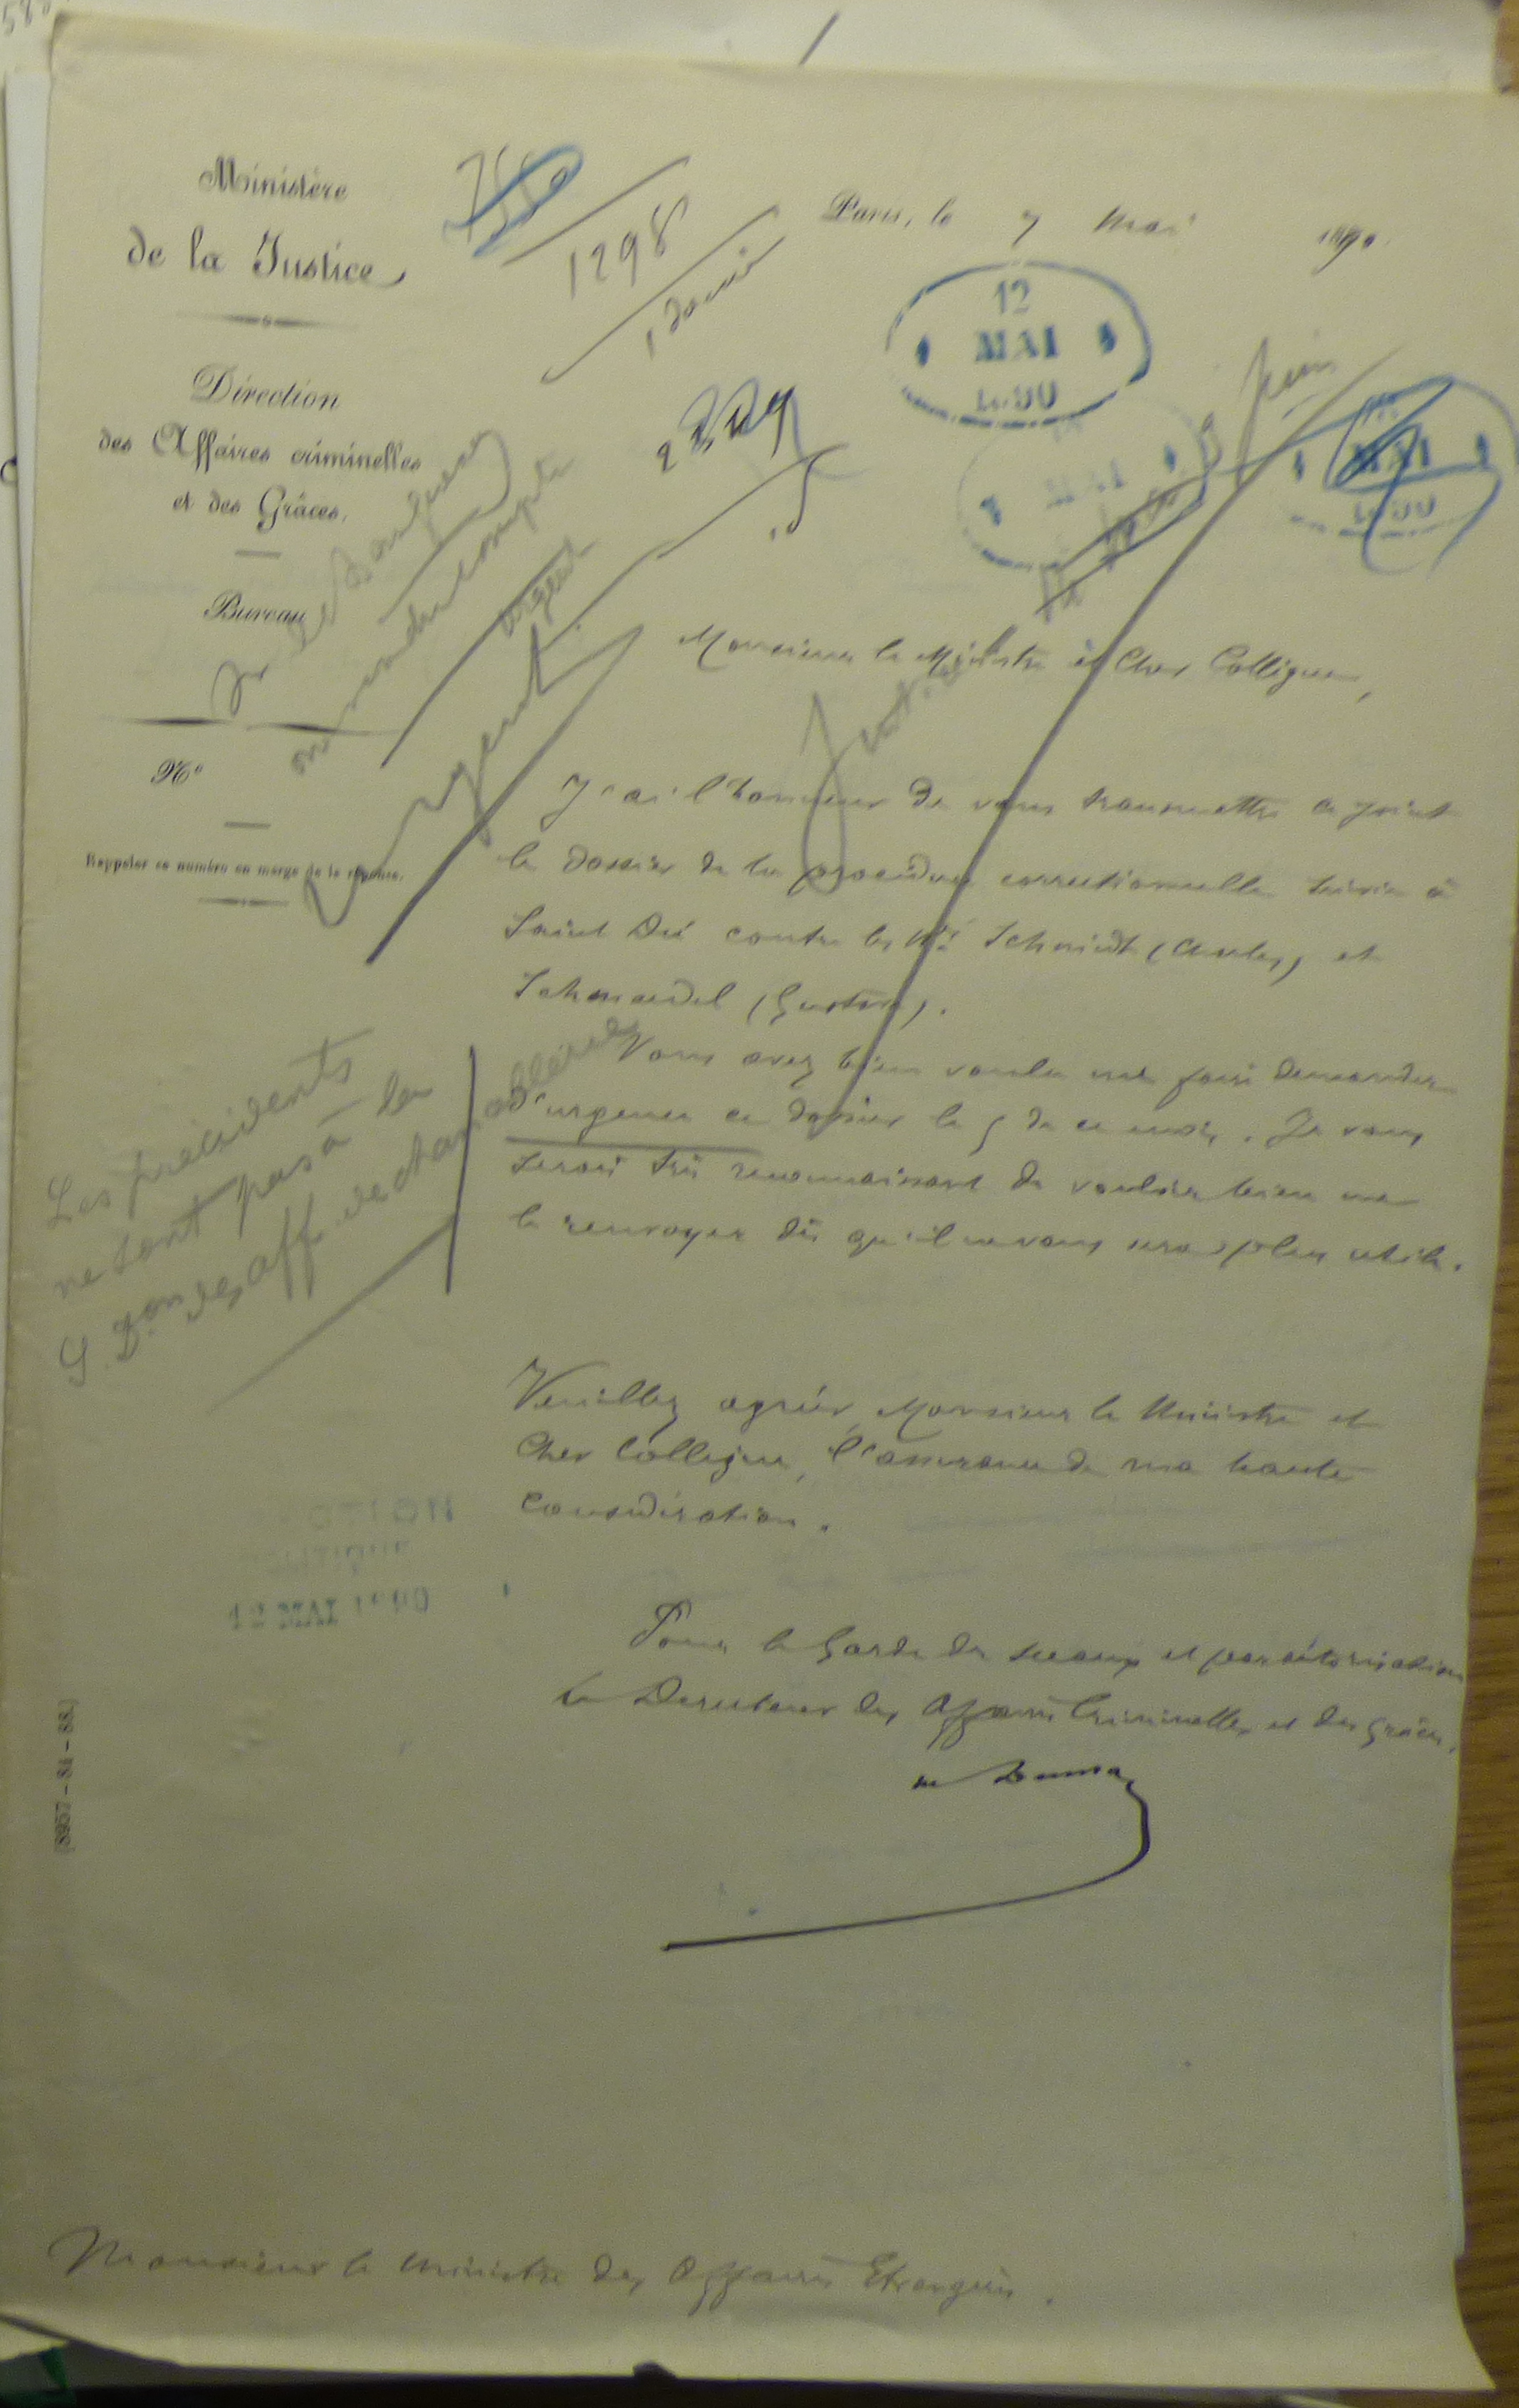 Ministère
de la Justice
Direction
des Affaires criminelles
et des Grâces.
Bureau
No
Rappeler ce numéro en marge de la réponse.
1298
1 dossier
Paris, le 7 Mai 1890
12
MAI
1890
MAI
MAI
1890
2229
Juin
urgent
urgent
Monsieur le Ministre et Cher Collègue,
J'ai l'honneur de vous transmettre ci joint
le dossier de la procédure correctionnelle suivie à
Saint Dié contre les Srs Schmidt (Charles) et
Schmaudel (Gustave).
Vous avez bien voulu me faire demander
d'urgence ce dossier le 5 de ce mois. Je vous
serais très reconnaissant de vouloir bien me
le renvoyer dès qu'il ne vous sera plus utile.
Les précédents
ne sont pas à la
S. Don des aff. de chancellerie
Veuillez agréer, Monsieur le Ministre et
Cher Collègue, l'assurance de ma haute
considération.
12 MAI 1890
Pour le Garde des sceaux et par autorisation
Le Directeur des Affaires Criminelles et des Grâces,
[8957-81-88]
Monsieur le Ministre des Affaires Etrangères.